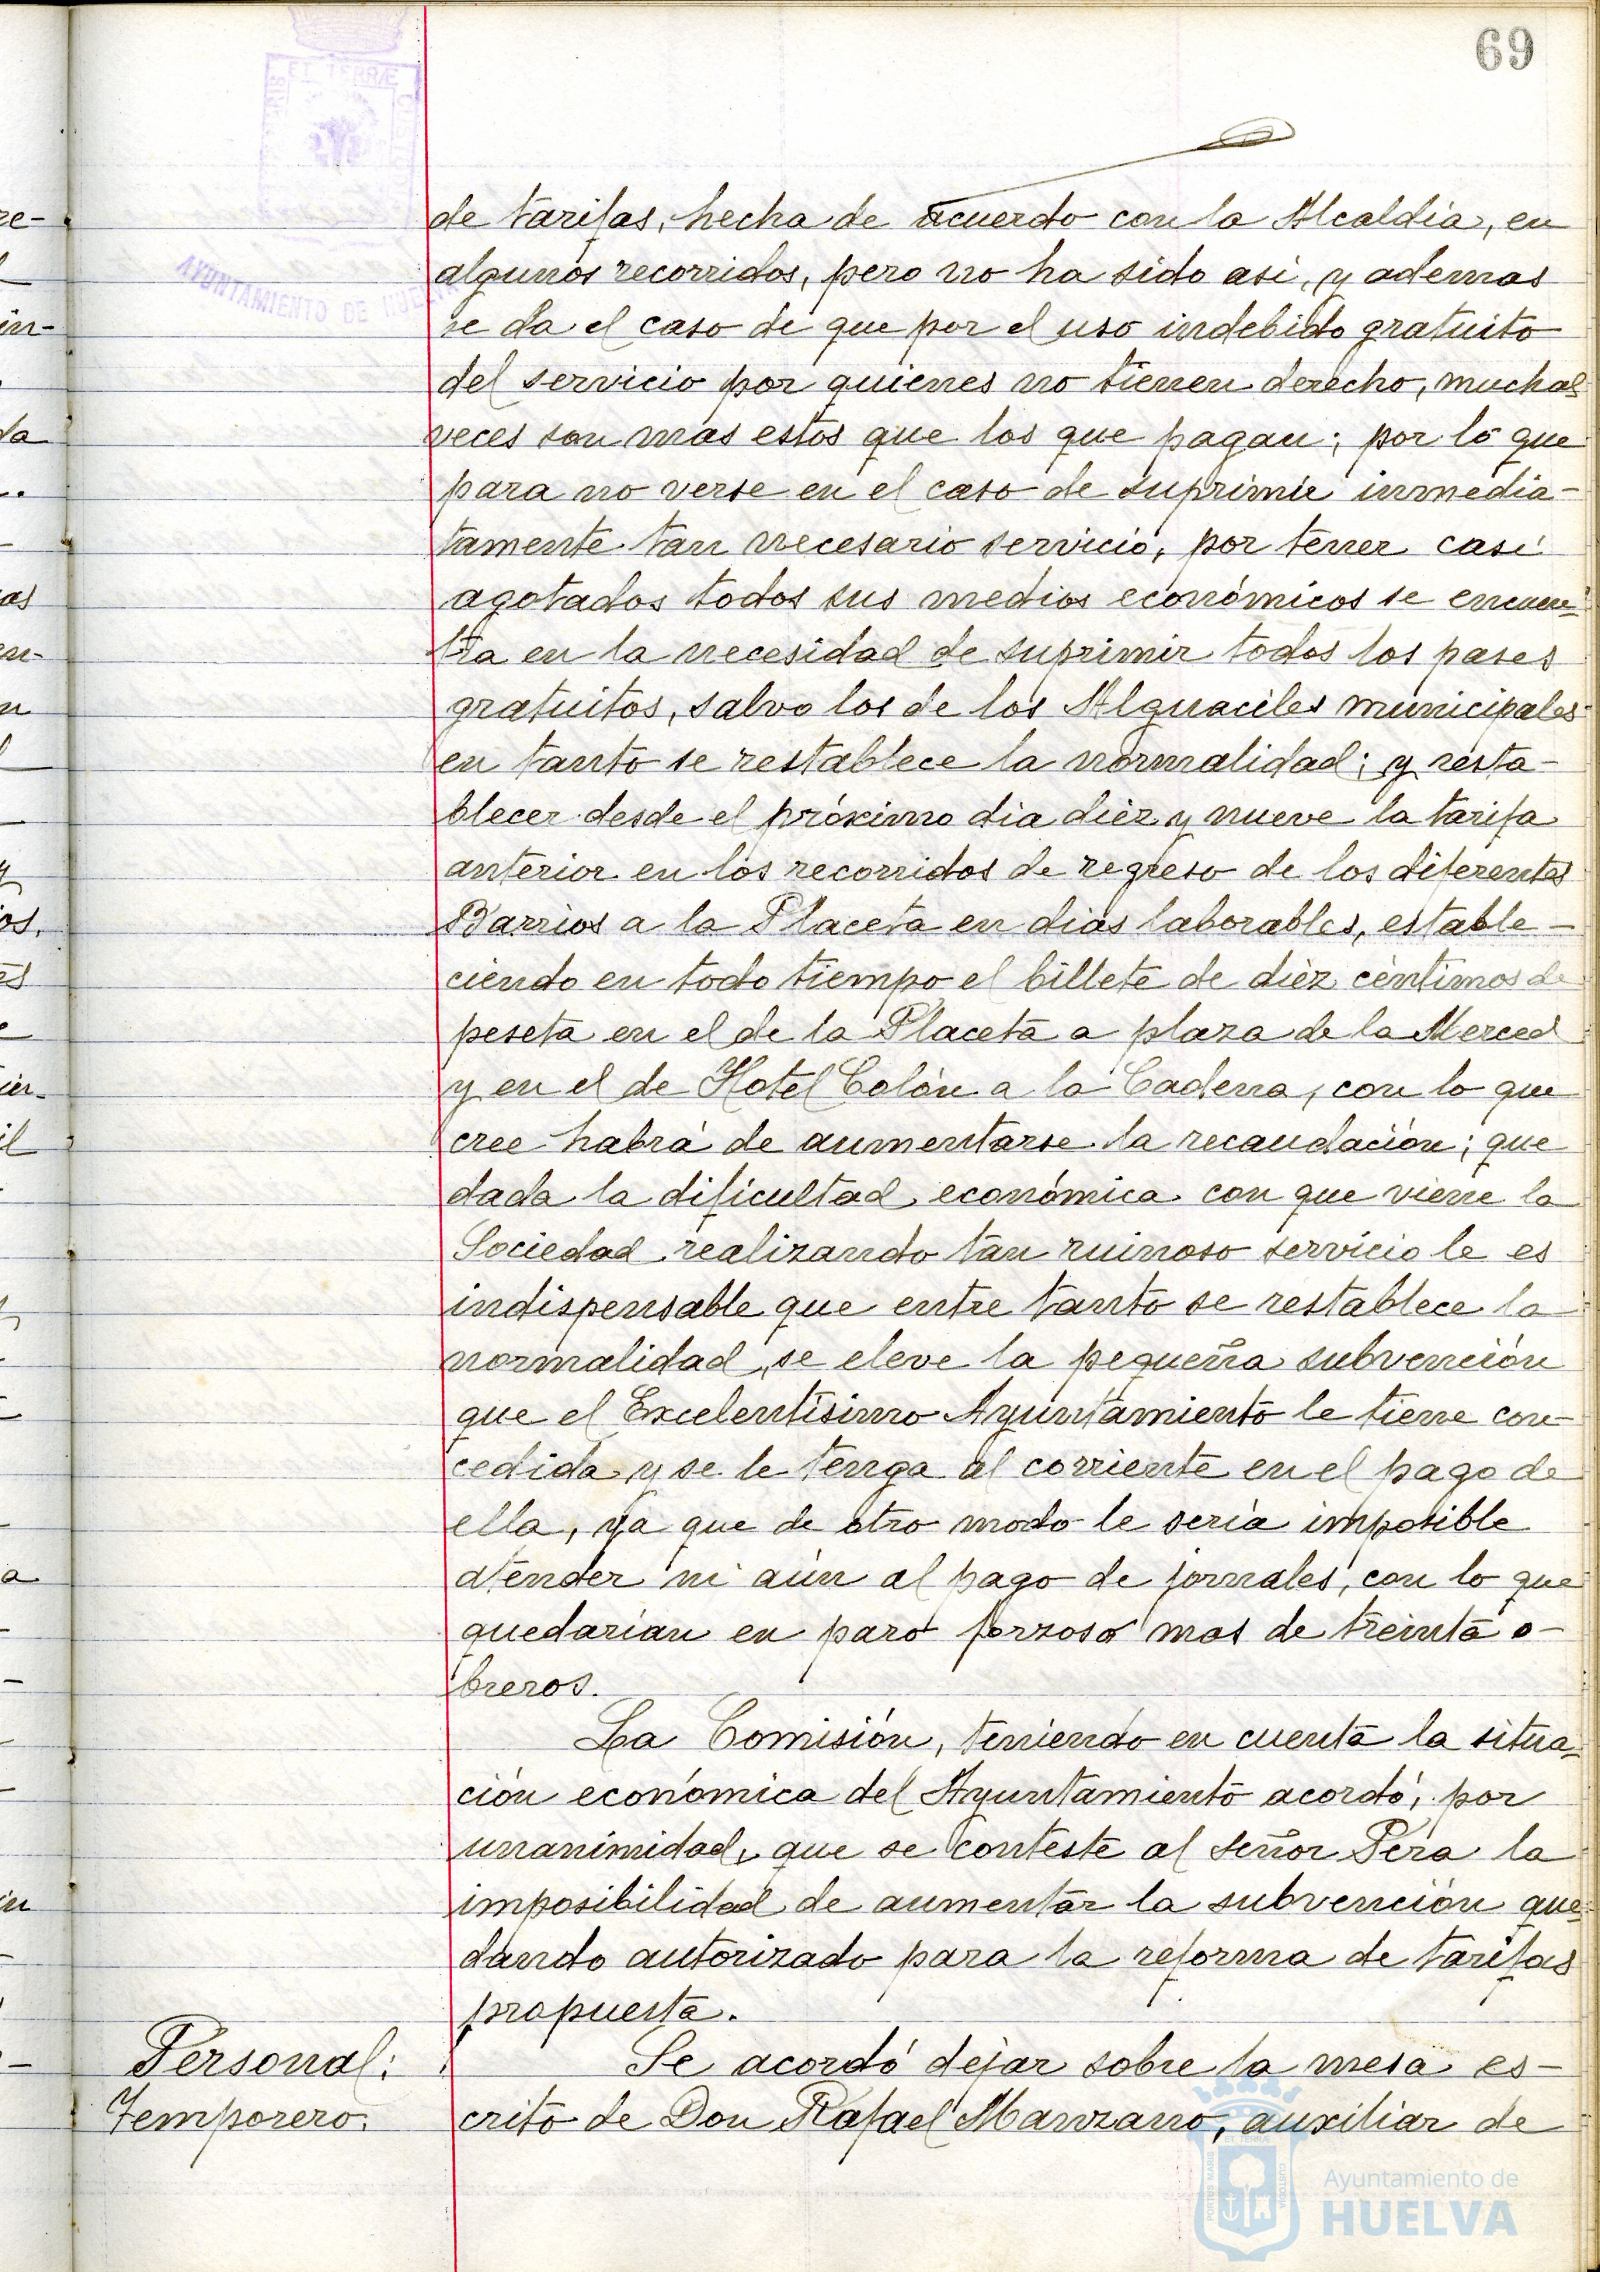 69
ET TERRÆ
AYUNTAMIENTO DE HUELVA
de tarifas, hecha de acuerdo con la Alcaldía, en
algunos recorridos, pero no ha sido asi, y ademas
se da el caso de que por el uso indebido gratuito
del servicio por quienes no tienen derecho, muchas
veces son mas estos que los que pagan; por lo que
para no verse en el caso de suprimir inmedia-
tamente tan necesario servicio, por tener casi
agotados todos sus medios económicos se encuen-
tra en la necesidad de suprimir todos los pases
gratuitos, salvo los de los Alguaciles municipales
en tanto se restablece la normalidad; y resta-
blecer desde el próximo dia diez y nueve la tarifa
anterior en los recorridos de regreso de los diferentes
Barrios a la Placeta en dias laborables, estable-
ciendo en todo tiempo el billete de diez céntimos de
peseta en el de la Placeta a plaza de la Merced
y en el de Hotel Colón a la Cadena, con lo que
cree habrá de aumentarse la recaudación; que
dada la dificultad económica con que viene la
Sociedad realizando tan ruinoso servicio le es
indispensable que entre tanto se restablece la
normalidad, se eleve la pequeña subvención
que el Excelentísimo Ayuntamiento le tiene con-
cedida y se le tenga al corriente en el pago de
ella, ya que de otro modo le sería imposible
atender ni aún al pago de jornales, con lo que
quedarían en paro forzoso mas de treinta o-
breros.
La Comisión, teniendo en cuenta la situa-
ción económica del Ayuntamiento acordó, por
unanimidad, que se conteste al señor Pera la
imposibilidad de aumentar la subvención que-
dando autorizado para la reforma de tarifas
propuesta.
Personal:
Temporero.
Se acordó dejar sobre la mesa es-
crito de Don Rafael Manzano, auxiliar de
Ayuntamiento de
HUELVA